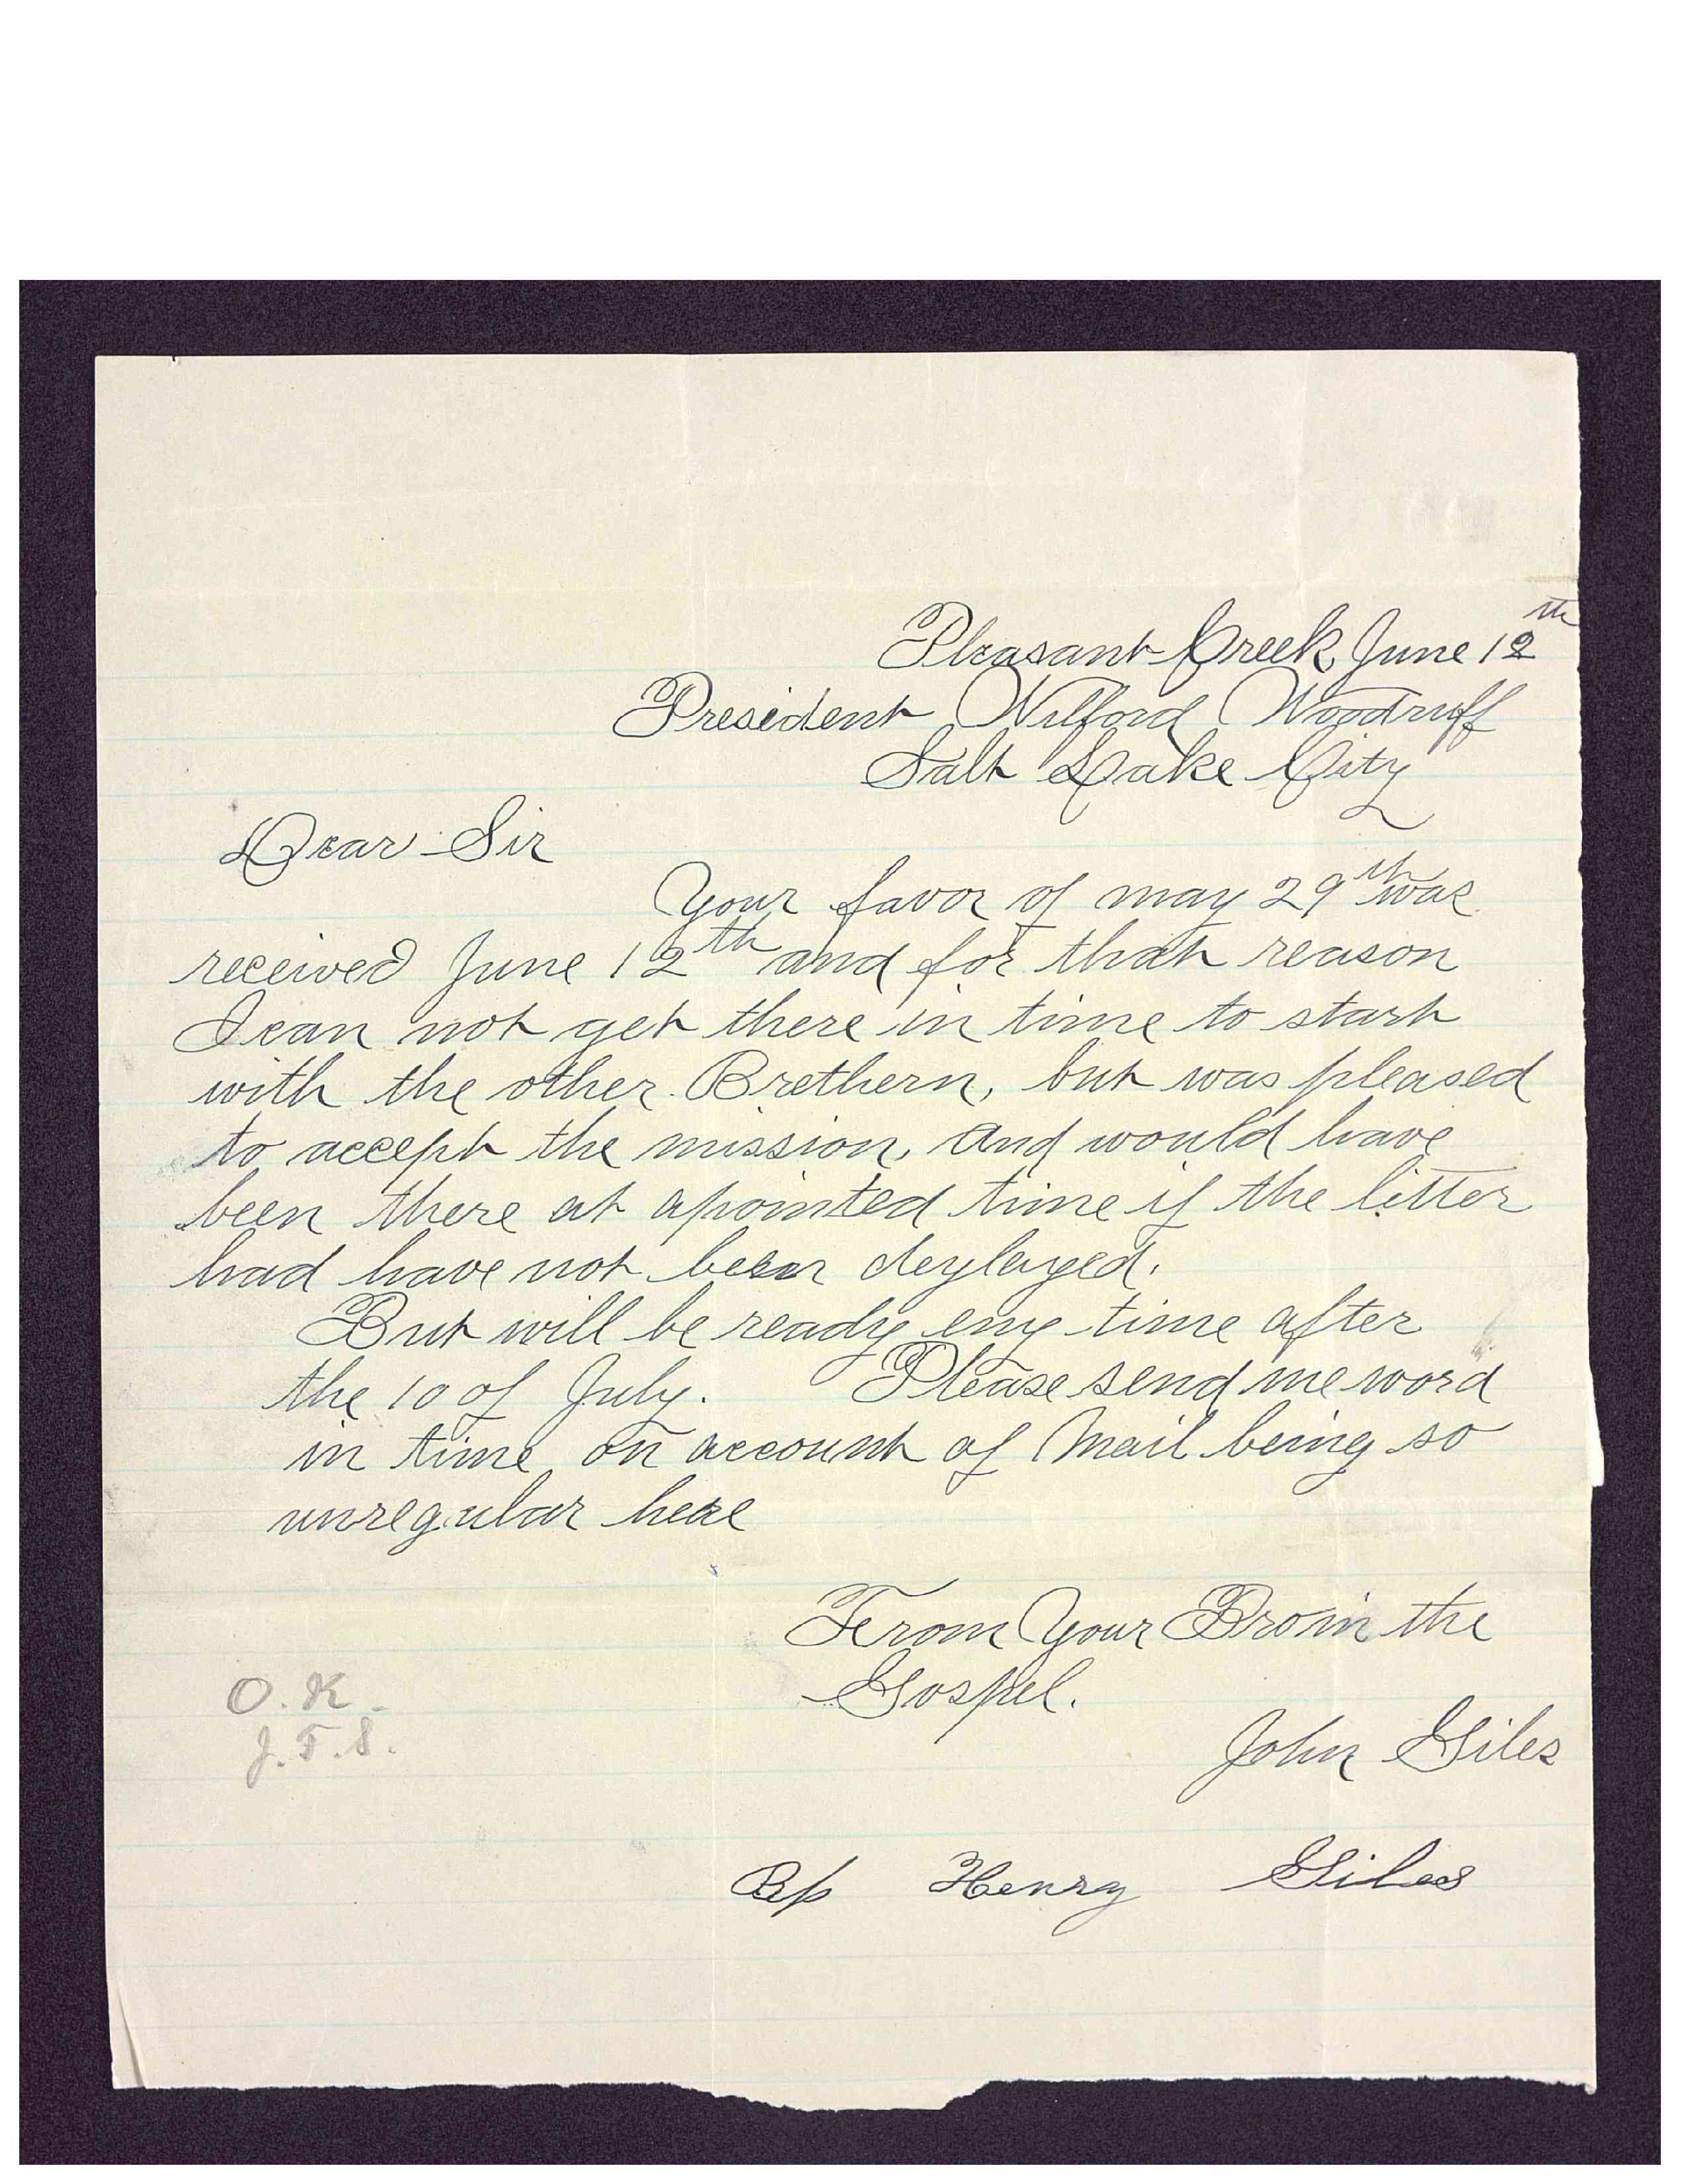 Pleasant Creek June 12th
President Wilford Woodruff
Salt Lake City
Dear Sir
Your favor of may 29th was
received June 12th and for that reason
I can not get there in time to start
with the other Brethern, but was pleased
to accept the mission, and would have
been there at apointed time if the litter
had have not been deylayed.
But will be ready eny time after
the 10 of July. Please send me word
in time on account of Mail being so
unregular here
From Your Bro in the
Gospel.
John Giles
O.K.
J.F.S.
Bp Henry Giles